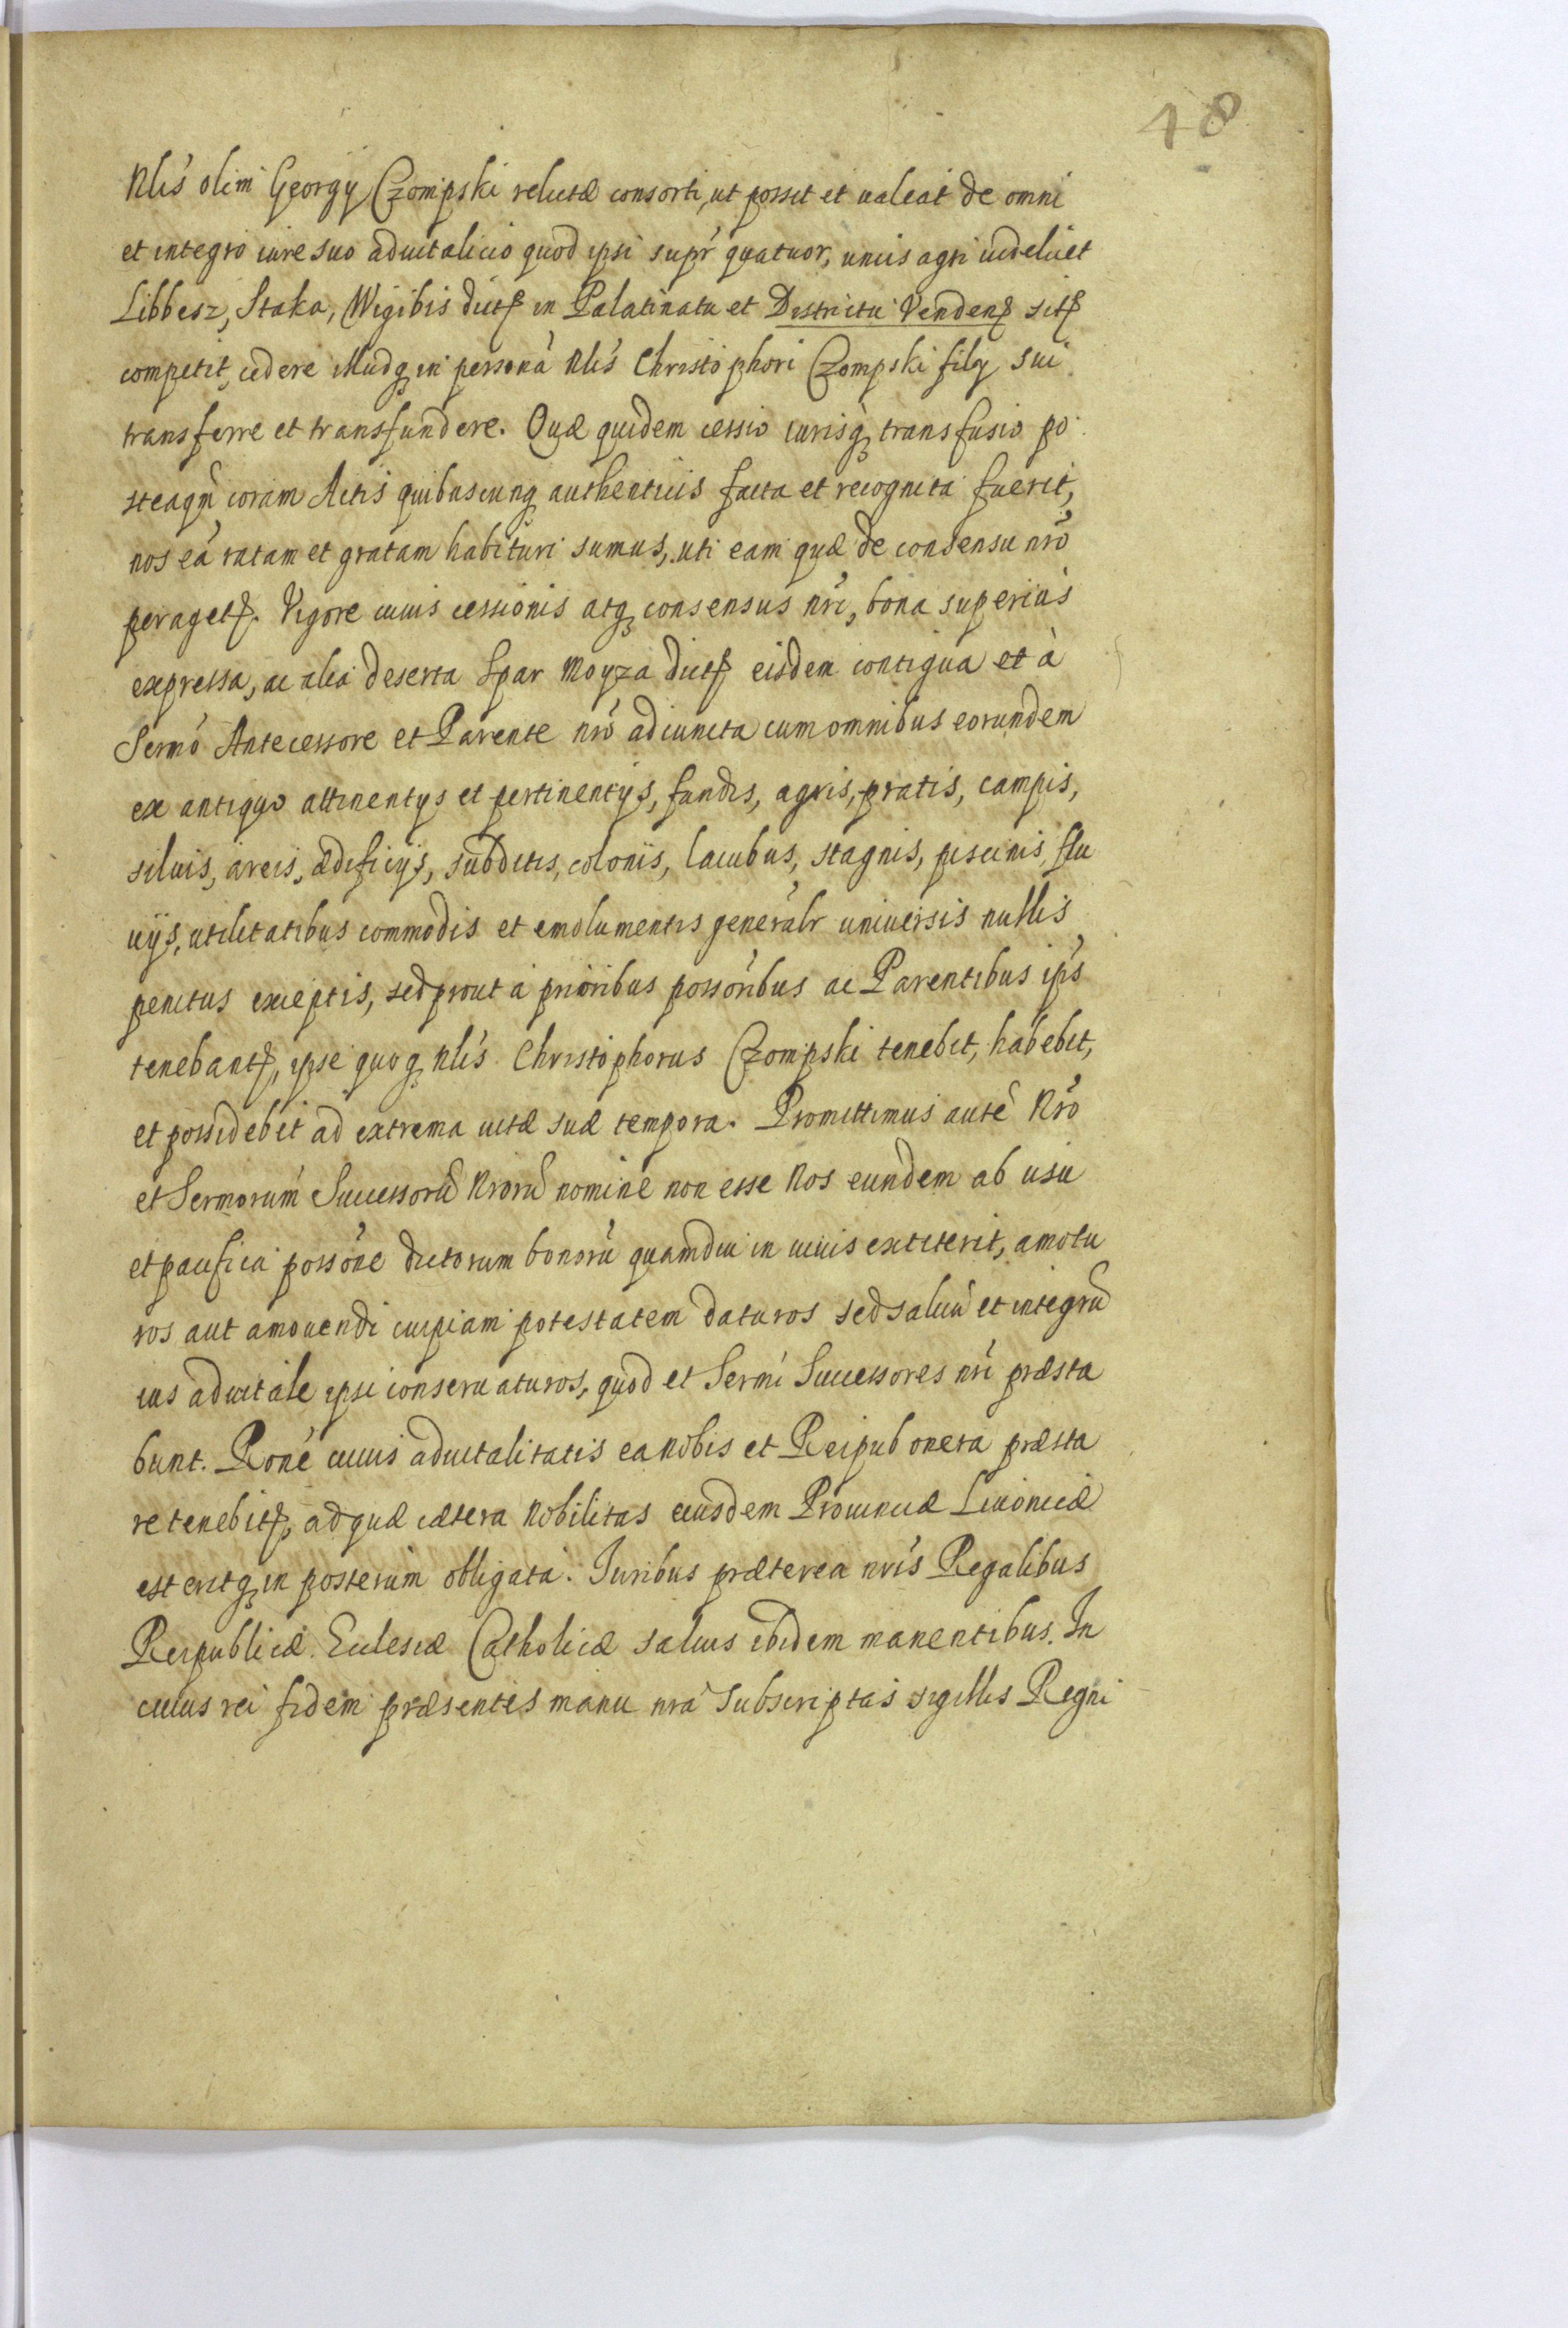 48
Nlis olim Georgij Czompski relictæ consorti, ut possit et ualeat de omni
et integro iure suo aduitalicio quod ipsi supr quatuor, uncis agri uidelicet
Libbesz, Staka, Wigibis dictꝭ in Palatinatu et Districtu Vendenꝭ sitꝭ
competit, cedere illudqꝫ in personā Nlis Christophori Czompski filij sui
transferre et transfundere. Quæ quidem cessio iurisqꝫ transfusio po
steaqũ coram Actis quibuscunqꝫ authenticis facta et recognita fuerit,
nos eā ratam et gratam habituri sumus, uti eam quæ de consensu nrō
peragetꝭ. Vigore cuius cessionis atqꝫ consensus nri, bona superius
expressa, ac alia deserta Spar Moyza dictꝭ eisdem contigua et à
Sermō Antecessore et Parente nrō adiuncta cum omnibus eorundem
ex antiquo attinentijs et pertinentijs, fundis, agris, pratis, campis,
siluis, areis, ædificijs, subditis, colonis, lacubus, stagnis, piscinis, flu
uijs, utilitatibus commodis et emolumentis generalr uniuersis nullis
penitus exceptis, sed prout à prioribus possōribus ac Parentibus ipś
tenebantꝭ, ipse quoqꝫ Nlis Christophorus Czompski tenebit, habebit,
et possidebit ad extrema uitæ suæ tempora. Promittimus autē Nrō
et Sermorum Successorũ Nrorũ nomine non esse Nos eundem ab usu
et pacifica possōne dictorum bonorũ quamdiu in uiuis extiterit, amotu
ros aut amouendi cuipiam potestatem daturos sed saluũ et integrũ
ius aduitale ipsi conseruaturos, quod et Sermi Successores nri præsta
bunt. Rōne cuius aduitalitatis ea Nobis et Reipub onera præsta
re tenebitꝭ, ad quæ cætera Nobilitas eiusdem Prouinciæ Liuonicæ
est eritqꝫ in posterum obligata. Iuribus præterea nris Regalibus
Reipublicæ. Ecclesiæ Catholicæ saluis ibidem manentibus. In
cuius rei fidem præsentes manu nrā subscriptas sigillis Regni